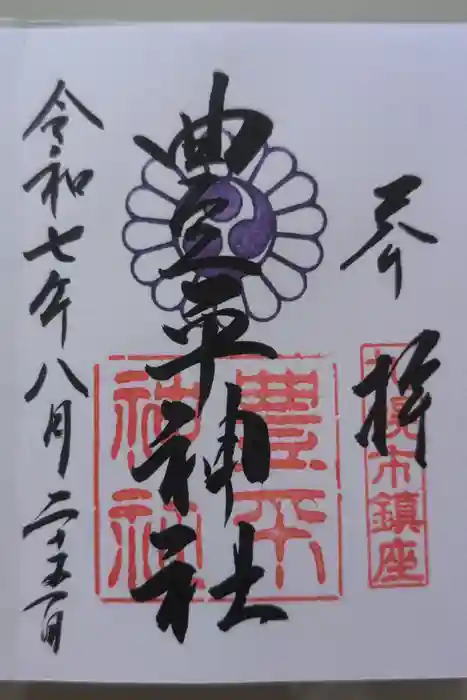 参拝
札幌市鎮座
豊平神社
豊平
神社
令和七年八月二十五日